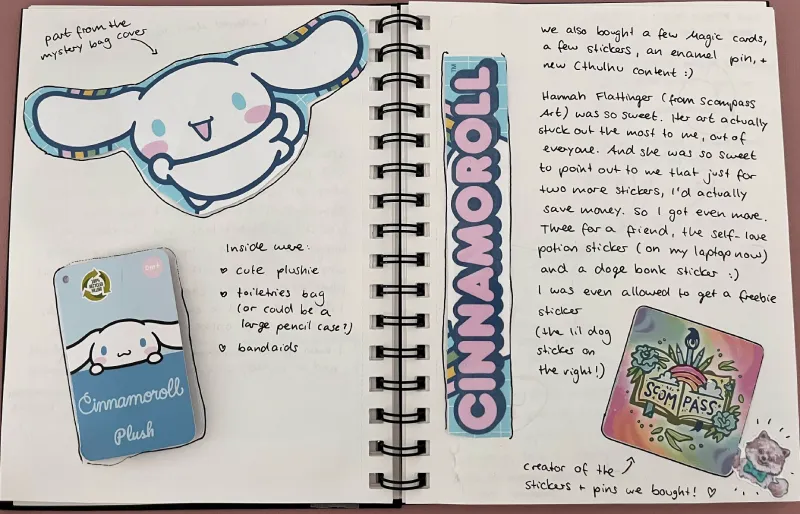 part from the
mystery bag cover
Inside were:
♡ cute plushie
♡ toiletries bag
(or could be a
large pencil case?)
♡ bandaids
Cinnamoroll
Plush
CINNAMOROLL
TM
we also bought a few Magic cards,
a few stickers, an enamel pin, +
new Cthulhu content :)
Hannah Flattinger (from Scompass
Art) was so sweet. Her art actually
stuck out the most to me, out of
everyone. And she was so sweet
to point out to me that just for
two more stickers, I'd actually
save money. So I got even more.
Three for a friend, the self-love
potion sticker (on my laptop now)
and a doge bonk sticker :)
I was even allowed to get a freebie
sticker
(the lil dog
sticker on
the right!)
SCOMPASS
creator of the
stickers + pins we bought! ♡